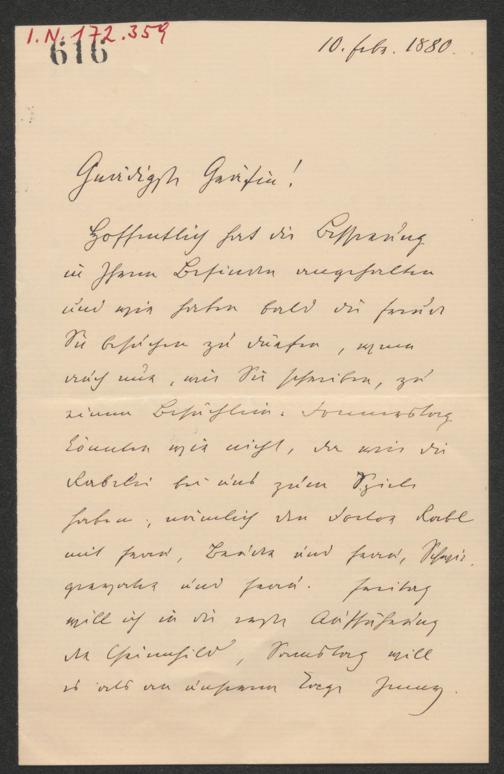 I.N. 172.359
616
10. Febr. 1880.
Gnädigste Gräfin!
Hoffentlich hat die Besserung
in Ihrem Befinden angehalten
und wir haben bald die Freude
Sie besuchen zu dürfen, wenn
auch nur, wie Sie schreiben, zu
einem Besüchlein. Donnerstag
könnten wir nicht, da wir die
bei uns zum Speisen
haben, nämlich den Doctor Rabl
mit Frau, Bruder und Frau, Schwie-
und Frau. Freitag
will ich in die erste Aufführung
der Chrimhild, Samstag will
es als an unserem Tage